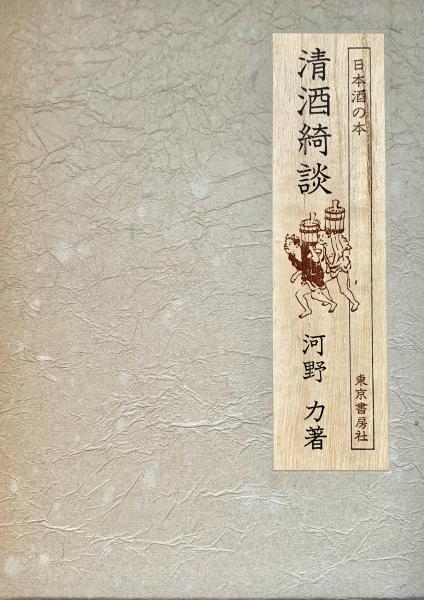 日本酒の本
清酒綺談
河野 力著
東京書房社